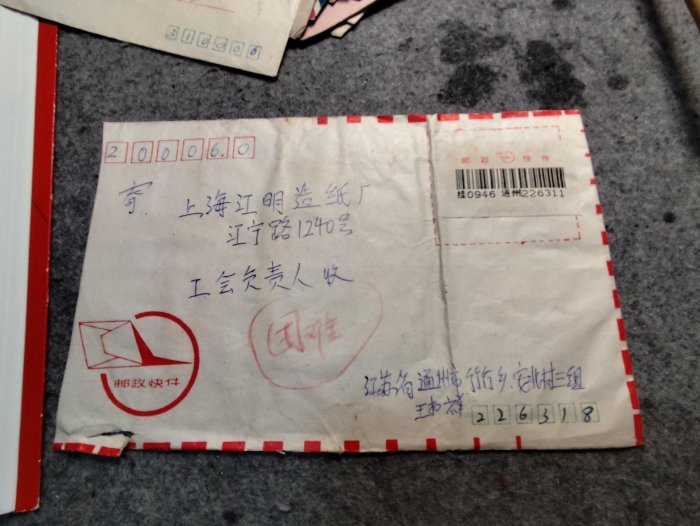 218506
200060
邮政 快件
挂0946 通州226311
寄.
上海江明造纸厂
江宁路1240号
工会负责人 收
困难
邮政快件
江苏省通州市竹行乡
村三组
226318